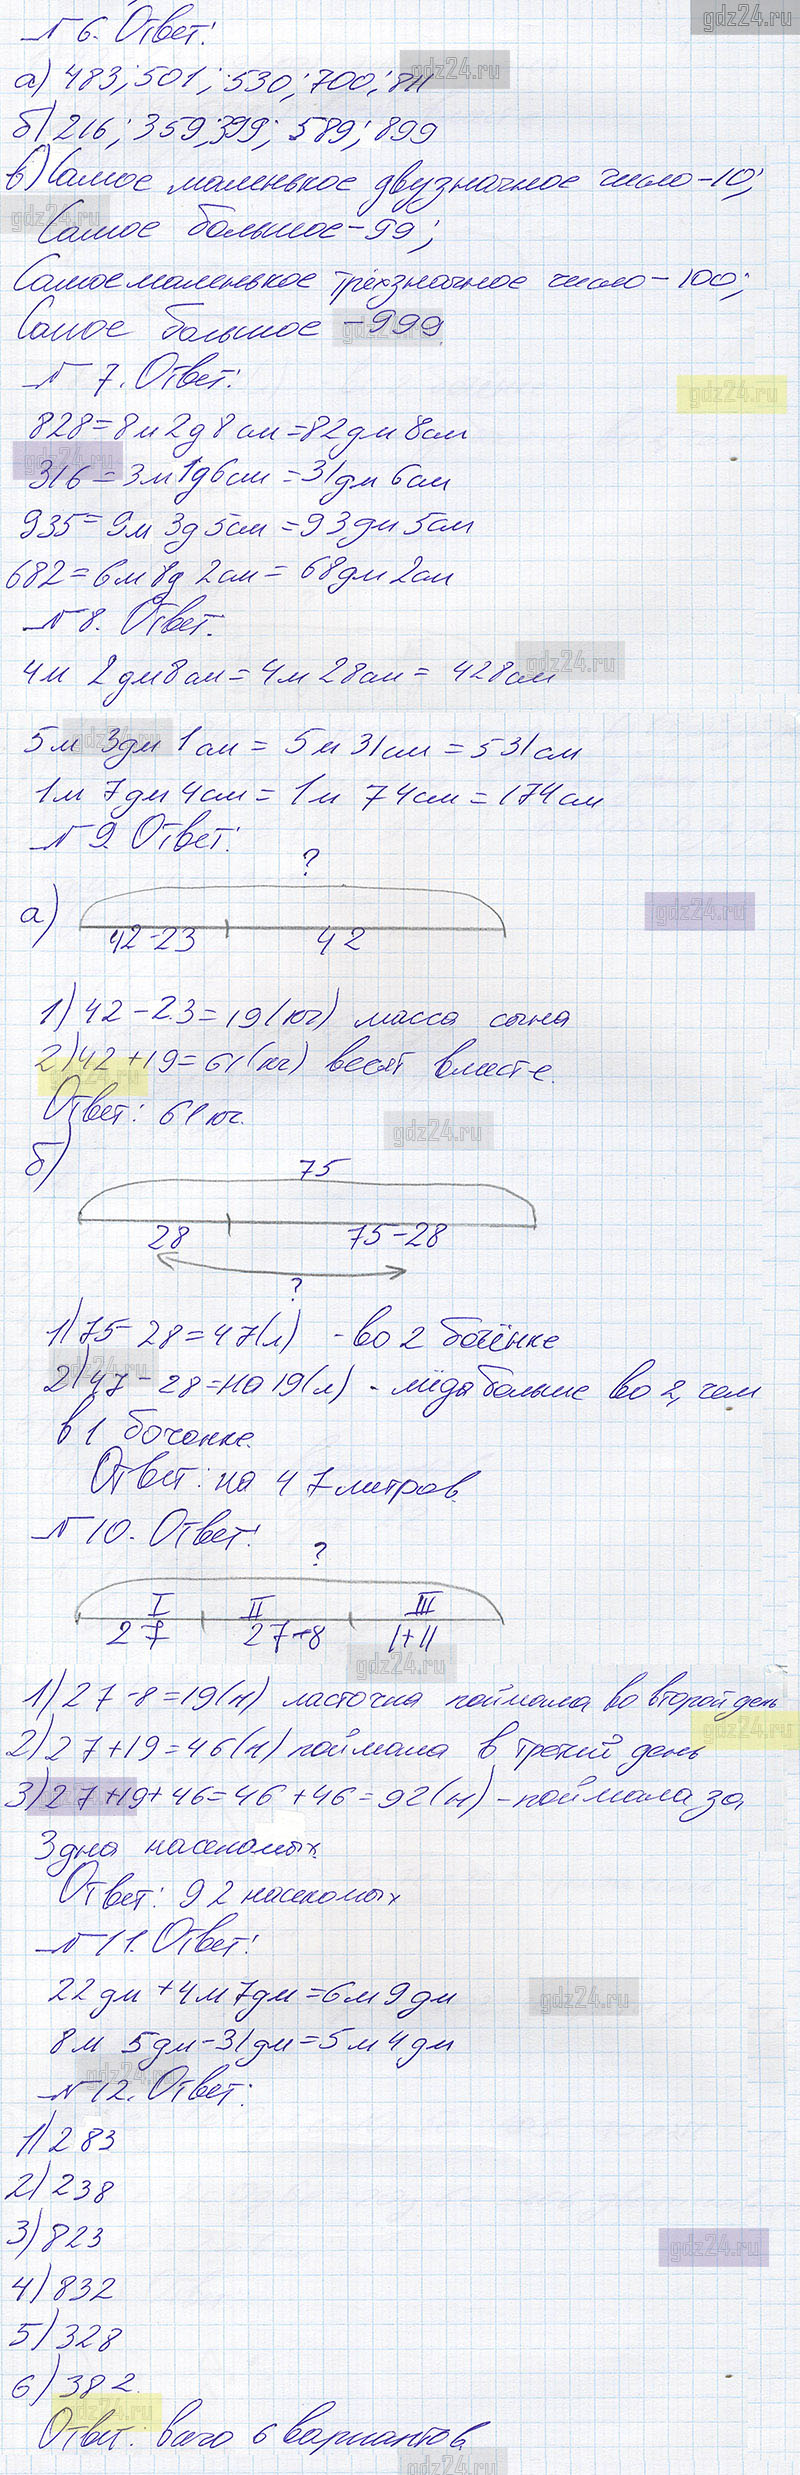 gdz24.ru
№ 6. Ответ:
gdz24.ru
а) 483; 501; 530; 700; 811
б) 216; 359; 399; 589; 899
в) Самое маленькое двузначное число - 10;
gdz24.ru
Самое большое - 99;
Самое маленькое трёхзначное число - 100;
Самое большое - 999
gdz24.ru
№ 7. Ответ:
gdz24.ru
828 = 8м 2д 8см = 82дм 8см
gdz24.ru
316 = 3м 1д 6см = 31дм 6см
935 = 9м 3д 5см = 93дм 5см
682 = 6м 8д 2см = 68дм 2см
№ 8. Ответ.
gdz24.ru
4м 2дм 8см = 4м 28см = 428см
gdz24.ru
5м 3дм 1см = 5м 31см = 531см
1м 7дм 4см = 1м 74см = 174см
№ 9. Ответ:
?
gdz24.ru
а)
42-23 42
1) 42 - 23 = 19 (кг) масса сына
2) 42 + 19 = 61 (кг) весят вместе.
gdz24.ru
Ответ: 61 кг.
gdz24.ru
б)
75
28 75-28
?
1) 75 - 28 = 47 (л) - во 2 бочёнке
gdz24.ru
2) 47 - 28 = на 19 (л) - мёда больше во 2, чем
в 1 бочонке.
Ответ: на 47 литров.
№ 10. Ответ:
?
I II III
27 27-8 I+II
gdz24.ru
1) 27 - 8 = 19 (н) ласточка поймала во второй день
gdz24.ru
2) 27 + 19 = 46 (н) поймала в третий день
3) 27 + 19 + 46 = 46 + 46 = 92 (н) - поймала за
3 дня насекомых.
Ответ: 92 насекомых
№ 11. Ответ:
22 дм + 4м 7дм = 6м 9дм
gdz24.ru
8м 5дм - 31дм = 5м 4дм
gdz24.ru
№ 12. Ответ:
1) 283
2) 238
3) 823
gdz24.ru
4) 832
5) 328
6) 382
gdz24.ru
Ответ: всего 6 вариантов.
gdz24.ru